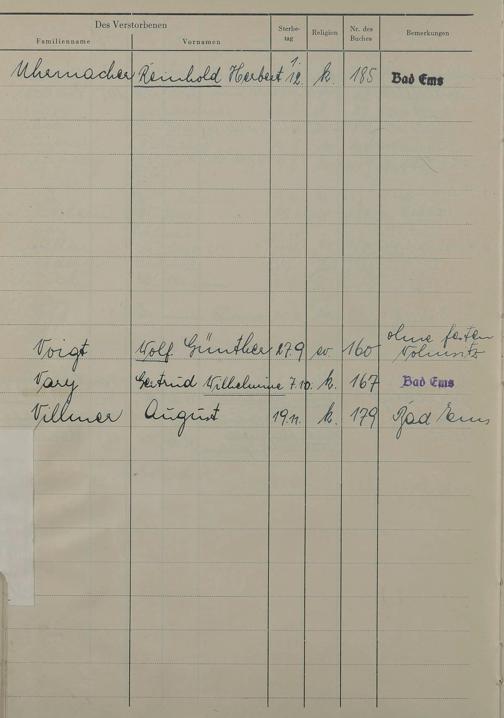 Des Verstorbenen
Familienname Vornamen Sterbe-tag Religion Nr. des Buches Bemerkungen
Uhrmacher Reinhold Herbert 1.12. k. 185 Bad Ems
Voigt Wolf Günther 27.9 ev 160 ohne festen Wohnsitz
Vary Gertrud Wilhelmine 7.10. k. 167 Bad Ems
Villmer August 19.11. k. 179 Bad Ems